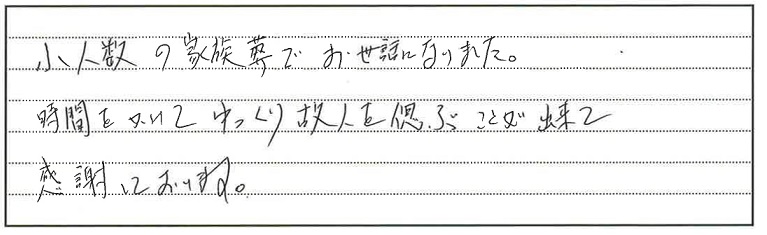 小人数の家族葬でお世話になりました。
時間をかけてゆっくり故人を偲ぶことが出来て
感謝しております。